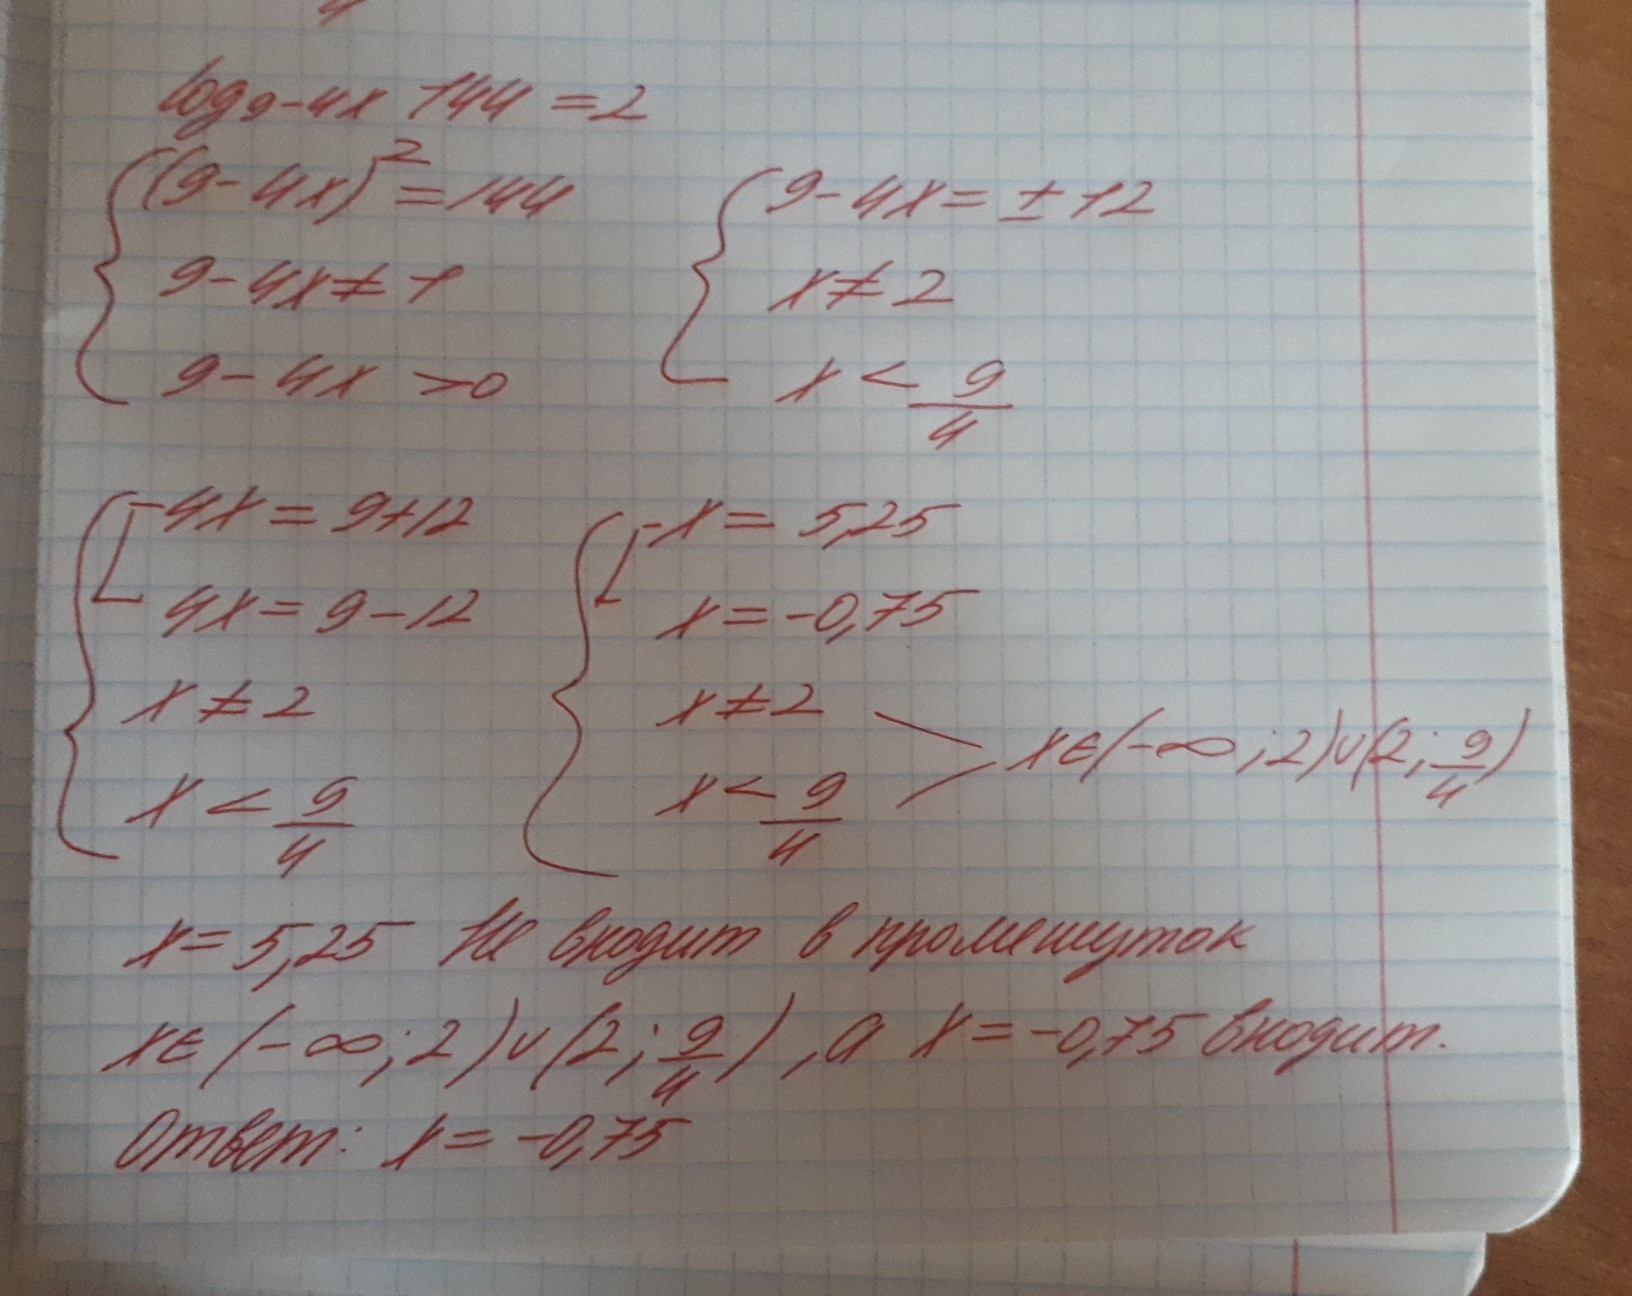 log₉₋₄ₓ 144 = 2
(9-4x)² = 144
9-4x ≠ 1
9-4x > 0
9-4x = ± 12
x ≠ 2
x < 9/4
4x = 9+12
4x = 9-12
x ≠ 2
x < 9/4
x = 5,25
x = -0,75
x ≠ 2
x < 9/4
x ∈ (-∞; 2) ∪ (2; 9/4)
x = 5,25 Не входит в промежуток
x ∈ (-∞; 2) ∪ (2; 9/4), а x = -0,75 входит.
Ответ: x = -0,75